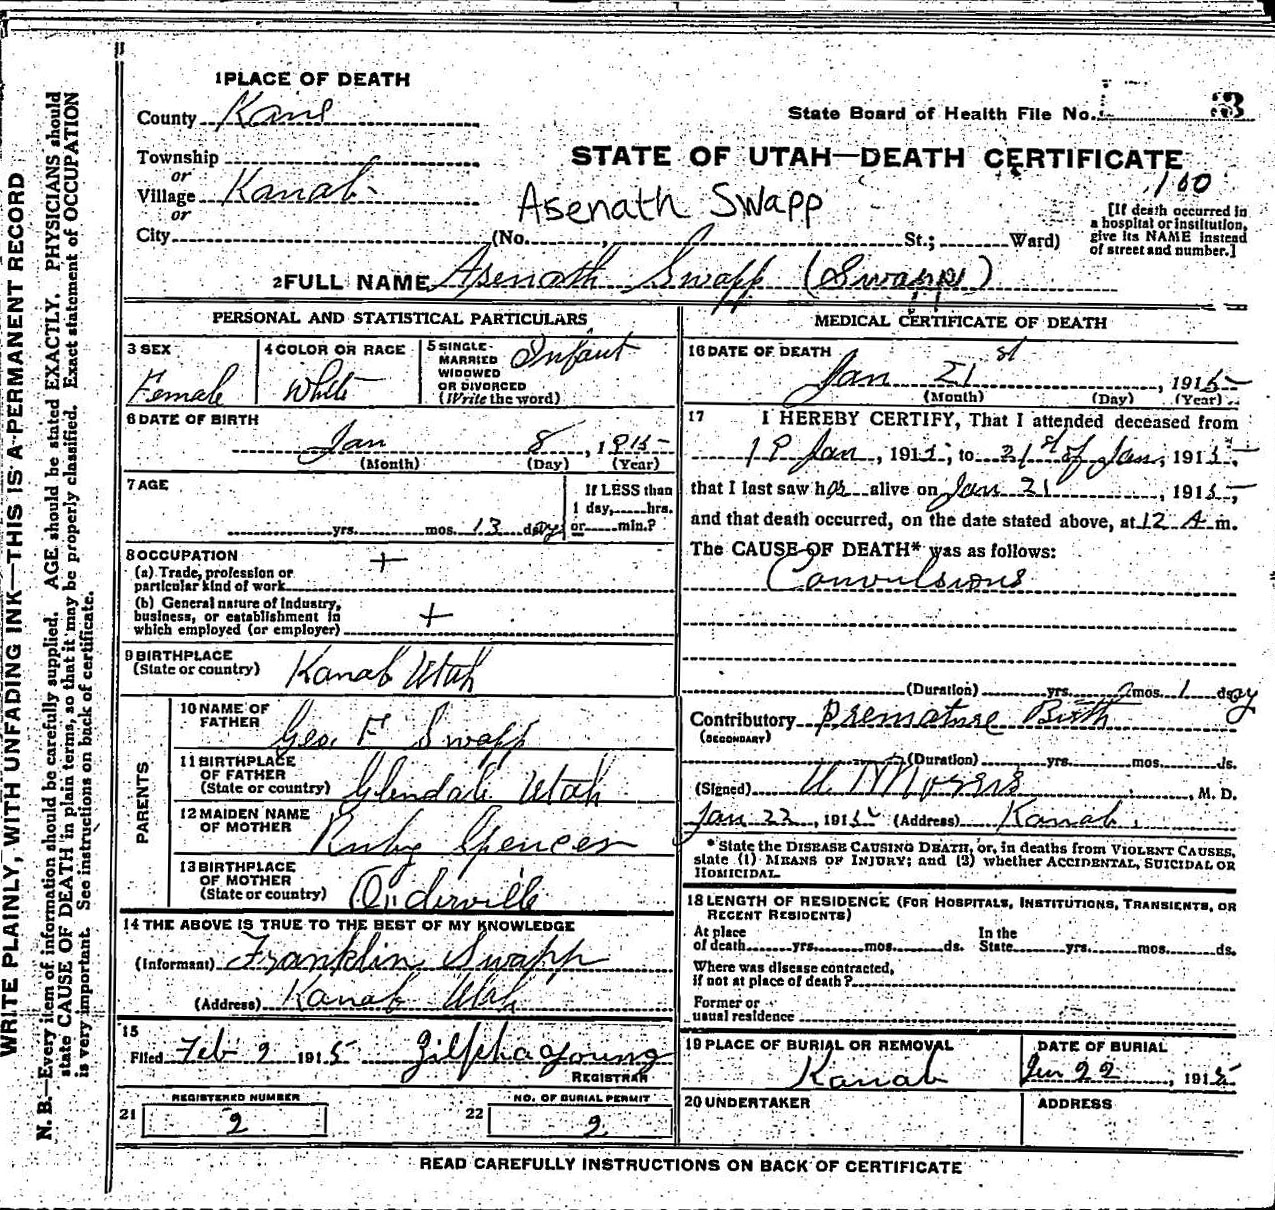 1 PLACE OF DEATH
County Kane
State Board of Health File No. 3
STATE OF UTAH—DEATH CERTIFICATE
Township
or
Village Kanab
or
100
Asenath Swapp
[If death occurred in
a hospital or institution,
give its NAME instead
of street and number.]
City (No. , St.; Ward)
2 FULL NAME Asenath Swapp (Swapp)
PERSONAL AND STATISTICAL PARTICULARS
3 SEX
Female
4 COLOR OR RACE
White
5 SINGLE
MARRIED
WIDOWED
OR DIVORCED
(Write the word)
Infant
6 DATE OF BIRTH
Jan 8, 1915
(Month) (Day) (Year)
7 AGE
yrs. mos. 13 days
If LESS than
1 day, hrs.
or min.?
8 OCCUPATION
(a) Trade, profession or
particular kind of work +
(b) General nature of industry,
business, or establishment in
which employed (or employer) +
9 BIRTHPLACE
(State or country) Kanab Utah
PARENTS
10 NAME OF
FATHER Geo. F Swapp
11 BIRTHPLACE
OF FATHER
(State or country) Glendale Utah
12 MAIDEN NAME
OF MOTHER Ruby Spencer
13 BIRTHPLACE
OF MOTHER
(State or country) Orderville
14 THE ABOVE IS TRUE TO THE BEST OF MY KNOWLEDGE
(Informant) Franklin Swapp
(Address) Kanab Utah
15
Filed Feb 9 1915 Zilpha Young
REGISTRAR
REGISTERED NUMBER
21 2
NO. OF BURIAL PERMIT
22 2
MEDICAL CERTIFICATE OF DEATH
16 DATE OF DEATH
Jan 21st, 1915
(Month) (Day) (Year)
17 I HEREBY CERTIFY, That I attended deceased from
19 Jan, 1915, to 21st of Jan, 1915,
that I last saw her alive on Jan 21, 1915,
and that death occurred, on the date stated above, at 12 A m.
The CAUSE OF DEATH* was as follows:
Convulsions
(Duration) yrs. mos. 1 day
Contributory Premature Birth
(SECONDARY)
(Duration) yrs. mos. ds.
(Signed) , M. D.
Jan 22, 1915 (Address) Kanab.
*State the DISEASE CAUSING DEATH, or, in deaths from VIOLENT CAUSES,
state (1) MEANS OF INJURY; and (2) whether ACCIDENTAL, SUICIDAL OR
HOMICIDAL.
18 LENGTH OF RESIDENCE (FOR HOSPITALS, INSTITUTIONS, TRANSIENTS, OR
RECENT RESIDENTS)
At place
of death yrs. mos. ds.
In the
State yrs. mos. ds.
Where was disease contracted,
if not at place of death?
Former or
usual residence
19 PLACE OF BURIAL OR REMOVAL
Kanab
DATE OF BURIAL
Jan 22, 1915
20 UNDERTAKER
ADDRESS
READ CAREFULLY INSTRUCTIONS ON BACK OF CERTIFICATE
WRITE PLAINLY, WITH UNFADING INK—THIS IS A PERMANENT RECORD
N. B.—Every item of information should be carefully supplied. AGE should be stated EXACTLY. PHYSICIANS should
state CAUSE OF DEATH in plain terms, so that it may be properly classified. Exact statement of OCCUPATION
is very important. See instructions on back of certificate.